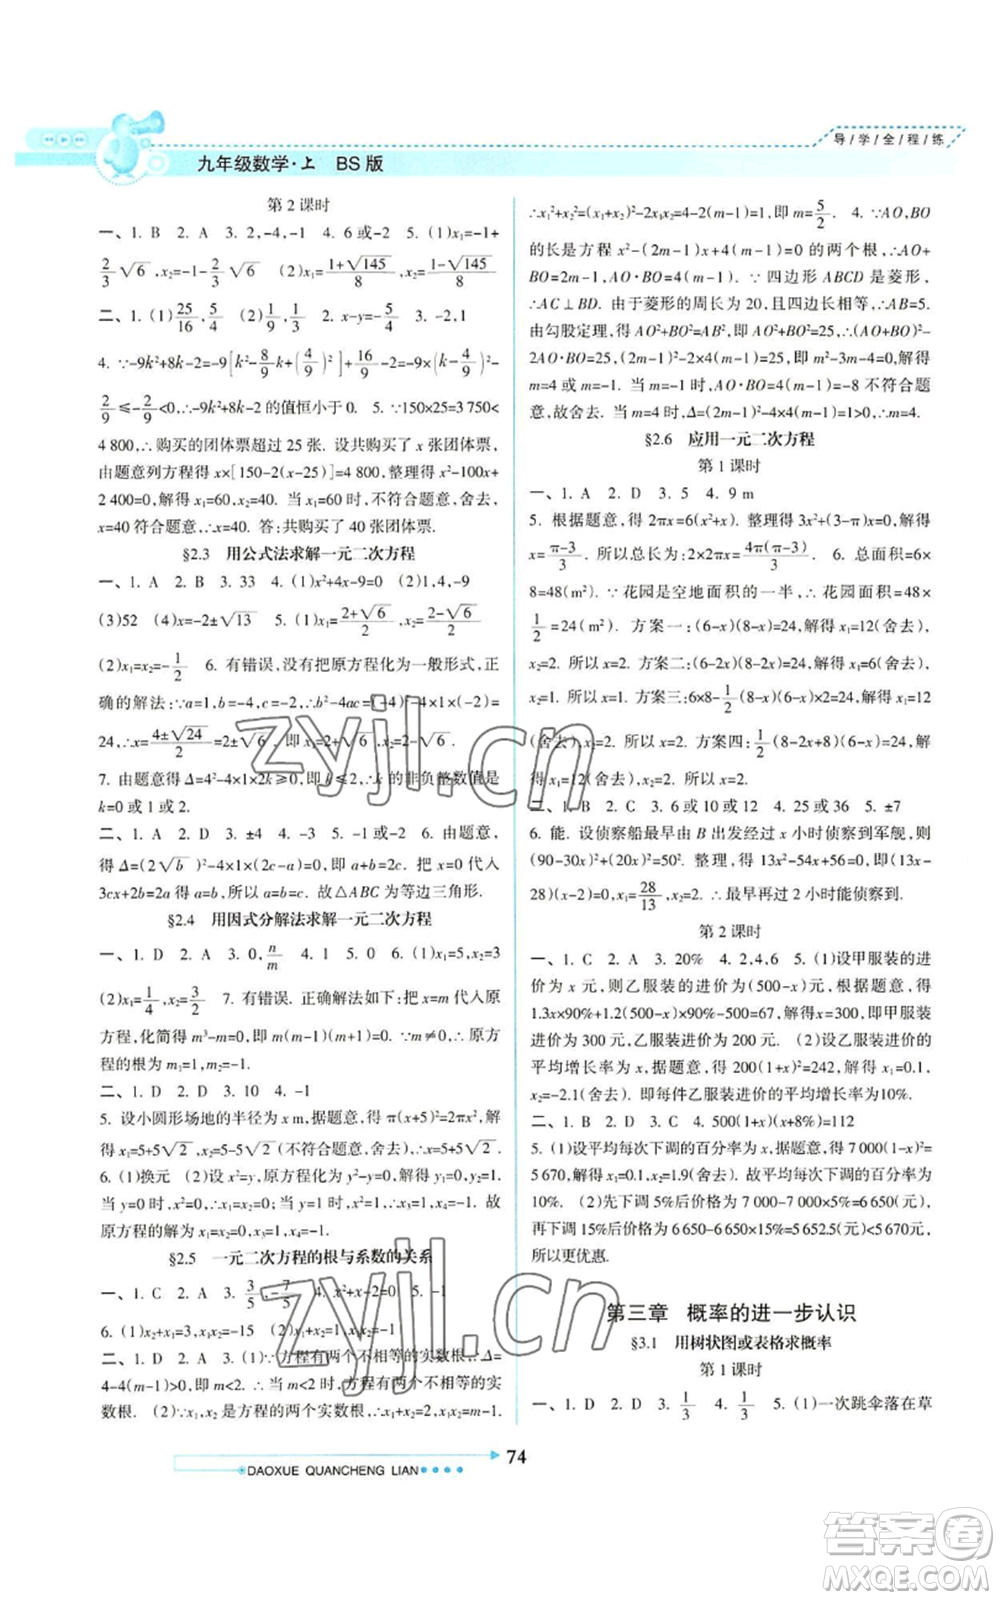 导/学/全/程/练
九年级数学·上 BS版
第2课时
一、1. B 2. A 3. 2,-4,-1 4. 6或-2 5. (1)x₁=-1+
2/3√6,x₂=-1-2/3√6 (2)x₁=(1+√145)/8,x₂=(1-√145)/8
二、1. (1)25/16,5/4 (2)1/9,1/3 2. x-y=-5/4 3. -2,1
4. ∵-9k²+8k-2=-9[k²-8/9k+(4/9)²]+16/9-2=-9×(k-4/9)²-
2/9≤-2/9<0,∴-9k²+8k-2的值恒小于0. 5. ∵150×25=3 750<
4 800,∴购买的团体票超过25张. 设共购买了x张团体票,
由题意列方程得x×[150-2(x-25)]=4 800,整理得x²-100x+
2 400=0,解得x₁=60,x₂=40. 当x=60时,不符合题意,舍去,
x=40符合题意,∴x=40. 答:共购买了40张团体票.
§2.3 用公式法求解一元二次方程
一、1. A 2. B 3. 33 4. (1)x²+4x-9=0 (2)1,4,-9
(3)52 (4)x=-2±√13 5. (1)x₁=(2+√6)/2,x₂=(2-√6)/2
(2)x₁=x₂=-1/2 6. 有错误,没有把原方程化为一般形式,正
确的解法:∵a=1,b=-4,c=-2,∴b²-4ac=(-4)²-4×1×(-2)=
24,∴x=(4±√24)/2=2±√6,即x₁=2+√6,x₂=2-√6.
7. 由题意得Δ=4²-4×1×2k≥0,即k≤2,∴k的非负整数值是
k=0或1或2.
二、1. A 2. D 3. ±4 4. -3 5. -1或2 6. 由题意,
得Δ=(2√b)²-4×1×(2c-a)=0,即a+b=2c. 把x=0代入
3cx+2b=2a得a=b,所以a=b=c. 故△ABC为等边三角形.
§2.4 用因式分解法求解一元二次方程
一、1. D 2. A 3. 0,n/m 4. 1 5. 0 6. (1)x₁=5,x₂=3
(2)x₁=1/4,x₂=3/2 7. 有错误. 正确解法如下:把x=m代入原
方程,化简得m³-m=0,即m(m+1)(m-1)=0. ∵m≠0,∴原方
程的根为m=1或m=-1.
二、1. D 2. D 3. 10 4. -1
5. 设小圆形场地的半径为x m,据题意,得π(x+5)²=2πx²,
解得x₁=5+5√2,x₂=5-5√2(不符合题意,舍去). ∴x=5+5√2.
6. (1)换元 (2)设x²=y,原方程化为y²-y=0,解得y₁=0,y₂=
1. 当y=0时,x²=0,∴x=0;当y=1时,x²=1,∴x=±1. 故
原方程的解为x₁=x₂=0,x₃=1,x₄=-1.
§2.5 一元二次方程的根与系数的关系
一、1. C 2. A 3. 3/5,-7/5 4. x²+x-2=0 5. -1
6. (1)x₁+x₂=3,x₁x₂=-15 (2)x₁+x₂=0,x₁x₂=-1
二、1. C 2. A 3. (1)∵方程有两个不相等的实数根,∴Δ=
4-4(m-1)>0,即m<2. ∴当m<2时,方程有两个不相等的实
数根. (2)∵x₁,x₂是方程的两个实数根,∴x₁+x₂=2,x₁x₂=m-1.
∴x₁²+x₂²=(x₁+x₂)²-2x₁x₂=4-2(m-1)=1,即m=5/2. 4. ∵AO,BO
的长是方程x²-(2m-1)x+4(m-1)=0的两个根,∴AO+
BO=2m-1,AO·BO=4(m-1). ∵四边形ABCD是菱形,
∴AC⊥BD. 由于菱形的周长为20,且四边相等,∴AB=5.
由勾股定理,得AO²+BO²=AB²,即AO²+BO²=25,∴(AO+BO)²-
2AO·BO=25,∴(2m-1)²-2×4(m-1)=25,即m²-3m-4=0,解得
m=4或m=-1. 当m=-1时,AO·BO=4(m-1)=-8不符合题
意,故舍去. 当m=4时,Δ=(2m-1)²-4×4(m-1)=1>0,∴m=4.
§2.6 应用一元二次方程
第1课时
一、1. A 2. D 3. 5 4. 9 m
5. 根据题意,得2πx=6(x²+x). 整理得3x²+(3-π)x=0,解得
x=(π-3)/3. 所以总长为:2×2πx=4π(π-3)/3. 6. 总面积=6×
8=48(m²). ∵花园是空地面积的一半,∴花园面积=48×
1/2=24(m²). 方案一:(6-x)(8-x)=24,解得x₁=12(舍去),
x₂=2. 所以x=2. 方案二:(6-2x)(8-2x)=24,解得x₁=6(舍
去),x₂=1. 所以x=1. 方案三:6×8-1/2(8-x)(6-x)×2=24,解得x₁=12
(舍去),x₂=2. 所以x=2. 方案四:1/2(8-2x+8)(6-x)=24,
解得x₁=12(舍去),x₂=2. 所以x=2.
二、1. B 2. C 3. 6或10或12 4. 25或36 5. ±7
6. 能. 设侦察船最早由B出发经过x小时侦察到军舰,则
(90-30x)²+(20x)²=50². 整理,得13x²-54x+56=0,即(13x-
28)(x-2)=0. ∴x₁=28/13,x₂=2. ∴最早再过2小时能侦察到.
第2课时
一、1. C 2. A 3. 20% 4. 2,4,6 5. (1)设甲服装的进
价为x元,则乙服装的进价为(500-x)元. 根据题意,得
1.3x×90%+1.2(500-x)×90%-500=67,解得x=300,即甲服
装进价为300元,乙服装进价为200元. (2)设乙服装进价
的平均增长率为x,得200(1+x)²=242,解得x₁=0.1,
x₂=-2.1(舍去). 即每件乙服装进价的平均增长率为10%.
二、1. B 2. D 3. C 4. 500(1+x)(8+10x)=112
5. (1)设平均每次下调的百分率为x,据题意,得7 000(1-x)²=
5 670,解得x₁=0.1,x₂=1.9(舍去). 故平均每次下调的百分率为
10%. (2)先下调5%后价格为7 000-7 000×5%=6 650(元),
再下调15%后价格为6 650-6 650×15%=5 652.5(元)<5 670元,
所以更优惠.
第三章 概率的进一步认识
§3.1 用树状图或表格求概率
第1课时
一、1. D 2. D 3. 1/3 4. 1/3 5. (1)一次跳伞落在草
74
DAOXUE QUANCHENG LIAN
zyjl.cn
zyjl.cn
答案圈
MXQE.COM